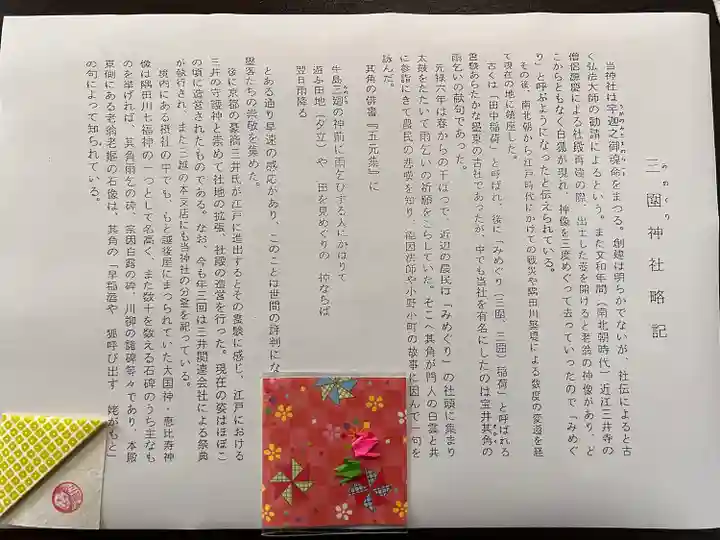 三囲神社略記
みめぐり
当神社は宇迦之御魂命をまつる。創建は明らかでないが、社伝によると古
うがのみたまのみこと
く弘法大師の勧請によるという。また文和年間(南北朝時代)近江三井寺の
僧源慶による社殿再建の際、出土した壺を開けると老翁の神像があり、ど
こからともなく白狐が現れ、神像を三度めぐって去っていったので「みめぐ
り」と呼ぶようになったと伝えられている。
その後、南北朝から江戸時代にかけての戦災や隅田川築堤による数度の変遷を経
て現在の地に鎮座した。
古くは「田中稲荷」と呼ばれ、後に「みめぐり(三囲、三廻)稲荷」と呼ばれる
霊験あらたかな墨東の古社であったが、中でも当社を有名にしたのは宝井其角の
雨乞いの献句であった。
元禄六年は春からの干ばつで、近辺の農民は「みめぐり」の社頭に集まり
太鼓をたたいて雨乞いの祈願をこらしていた。そこへ其角が門人の白雲と共
に参詣にきて農民の悲嘆を知り、能因法師や小野小町の故事に因んで一句を
詠んだ。
其角の俳書『五元集』に
牛島三廻の神前に雨乞ひする人にかはりて
遊ふ田地(夕立)や 田を見めぐりの 神ならば
翌日雨降る
とある通り早速の感応があり、このことは世間の評判にな
墨客たちの崇敬を集めた。
後に京都の豪商三井氏が江戸に進出するとその霊験に感じ、江戸における
三井の守護神と崇めて社地の拡張、社殿の造営を行った。現在の姿はほぼこ
の頃に造営されたものである。なお、今も年三回は三井関連会社による祭典
が執行され、また三越の本支店にも当神社の分霊を祀っている。
境内にある摂社の中でも、もと越後屋にまつられていた大国神・恵比寿神
像は隅田川七福神の一つとして名高く、また数十を数える石碑のうち主なも
のを挙げれば、其角雨乞の碑、宗因白露の碑、川柳の諸碑等々であり、本殿
東側にある老翁老嫗の石像は、其角の「早稲酒や 狐呼び出す 姥がもと」
の句によって知られている。